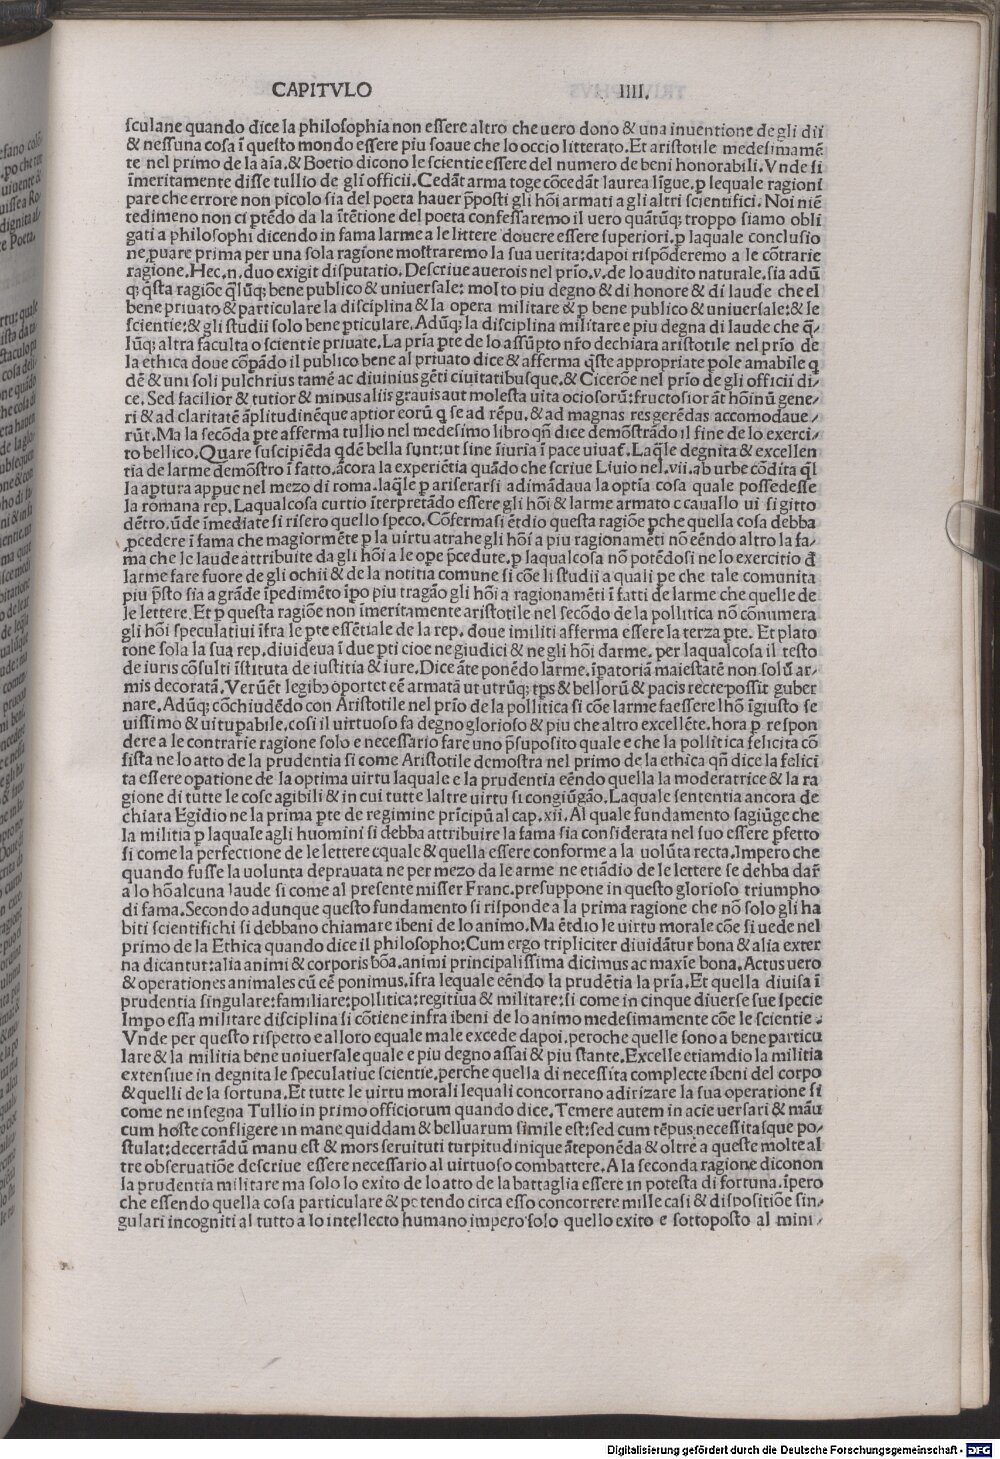 CAPITVLO IIII.
ſculane quando dice la philoſophia non eſſere altro che uero dono & una inuentione de gli dii
& neſſuna coſa ī queſto mondo eſſere piu ſoaue che lo occio litterato. Et ariſtotile medeſimamē
te nel primo de la aīa. & Boetio dicono le ſcientie eſſere del numero de beni honorabili. Vnde ſi
īmeritamente diſſe tullio de gli officii. Cedāt arma toge cōcedāt laurea līgue. ꝑ lequale ragioni
pare che errore non picolo ſia del poeta hauer p̄poſti gli hōi armati a gli altri ſcientifici. Noi niē
tedimeno non ci ptēdo da la ītētione del poeta confeſſaremo il uero quātūq; troppo ſiamo obli
gati a philoſophi dicendo in fama larme a le littere douere eſſere ſuperiori. ꝑ laquale concluſio
ne, puare prima per una ſola ragione moſtraremo la ſua uerita: dapoi riſpōderemo a le cōtrarie
ragione. Hec .n. duo exigit diſputatio. Deſcriue auerois nel prīo .v. de lo audito naturale. ſia adū
q; q̄ſta ragiōe q̄lūq; bene publico & uniuerſale: molto piu degno & di honore & di laude che el
bene priuato & particulare la diſciplina & la opera militare & ꝑ bene publico & uniuerſale: & le
ſcientie: & gli ſtudii ſolo bene pticulare. Adūq; la diſciplina militare e piu degna di laude che q̄
lūq; altra faculta o ſcientie priuate. La prīa pte de lo aſſūpto nr̄o dechiara ariſtotile nel prīo de
la ethica doue cōpādo il publico bene al priuato dice & afferma q̄ſte appropriate pole amabile q
dē & uni ſoli pulchrius tamē ac diuinius gēti ciuitatibuſque. & Cicerōe nel prīo de gli officii di⸗
ce. Sed facilior & tutior & minus aliis grauis aut moleſta uita ocioſorū: fructoſior āt hōinū gene⸗
ri & ad claritatē āplitudinēque aptior eorū q ſe ad rēpu. & ad magnas res gerēdas accomodaue⸗
rūt. Ma la ſecōda pte afferma tullio nel medeſimo libro qn̄ dice demōſtrādo il fine de lo exerci⸗
to bellico. Quare ſuſcipiēda qdē bella ſunt: ut ſine īiuria ī pace uiuat̄. Laq̄le degnita & excellen
tia de larme demōſtro ī fatto. ācora la experiētia quādo che ſcriue Liuio nel .vii. ab urbe cōdita q̄l
la aptura appue nel mezo di roma. laq̄le ꝑ ariſerarſi adimādaua la optīa coſa quale poſſedeſſe
la romana rep. Laqualcoſa curtio īterpretādo eſſere gli hōi & larme armato c cauallo ui ſi gitto
dētro. ūde īmediate ſi riſero quello ſpeco. Cōfermaſi ētdio queſta ragiōe pche quella coſa debba
pcedere ī fama che magiormēte ꝑ la uirtu atrahe gli hōi a piu ragionamēti nō eēndo altro la fa⸗
ma che le laude attribuite da gli hōi a le ope p̄cedute. ꝑ laqualcoſa nō potēdoſi ne lo exercitio đ
larme fare fuore de gli ochii & de la notitia comune ſi cōe li ſtudii a quali pe che tale comunita
piu p̄ſto ſia a grāde īpedimēto īpo piu tragāo gli hōi a ragionamēti ī fatti de larme che quelle de
le lettere. Et ꝑ queſta ragiōe non īmeritamente ariſtotile nel ſecōdo de la pollitica nō cōnumera
gli hōi ſpeculatiui īfra le pte eſſētiale de la rep. doue imiliti afferma eſſere la terza pte. Et plato
rone ſola la ſua rep. diuideua ī due pti cioe ne giudici & ne gli hōi darme. per laqualcoſa il teſto
de iuris cōſulti īſtituta de iuſtitia & iure. Dice āte ponēdo larme. īpatoriā maieſtatē non ſolū ar⸗
mis decoratā. Verūēt legibꝫ oportet eē armatā ut utrūq; tps & bellorū & pacis recte poſſit guber
nare. Adūq; cōchiudēdo con Ariſtotile nel prīo de la pollitica ſi cōe larme faeſſere lhō īgiuſto ſe
uiſſimo & uitupabile, coſi il uirtuoſo fa degno glorioſo & piu che altro excellēte. hora ꝑ reſpon
dere a le contrarie ragione ſolo e neceſſario fare uno p̄ſupoſito quale e che la pollitica felicita cō
ſiſta ne lo atto de la prudentia ſi come Ariſtotile demoſtra nel primo de la ethica qn̄ dice la felici
ta eſſere opatione de la optima uirtu laquale e la prudentia eēndo quella la moderatrice & la ra
gione di tutte le coſe agibili & in cui tutte laltre uirtu ſi congiūgāo. Laquale ſententia ancora de
chiara Egidio ne la prima pte de regimine prīcipū al cap. xii. Al quale fundamento ſagiūge che
la militia ꝑ laquale agli huomini ſi debba attribuire la fama ſia conſiderata nel ſuo eſſere pfetto
ſi come la perfectione de le lettere equale & quella eſſere conforme a la uolūta recta. Impero che
quando fuſſe la uolunta deprauata ne per mezo da le arme ne etiādio de le lettere ſe dehba dar̄
a lo hō alcuna laude ſi come al preſente miſſer Franc. preſuppone in queſto glorioſo triumpho
di fama. Secondo adunque queſto fundamento ſi riſponde a la prima ragione che nō ſolo gli ha
biti ſcientifichi ſi debbano chiamare ibeni de lo animo. Ma ētdio le uirtu morale cōe ſi uede nel
primo de la Ethica quando dice il philoſopho: Cum ergo tripliciter diuidātur bona & alia exter
na dicantur: alia animi & corporis bōa. animi principaliſſima dicimus ac maxīe bona. Actus uero
& operationes animales cū eē ponimus. īfra lequale eēndo la prudētia la prīa. Et quella diuiſa ī
prudentia ſingulare: familiare: pollitica: regitiua & militare: ſi come in cinque diuerſe ſue ſpecie
Impo eſſa militare diſciplina ſi cōtiene infra ibeni de lo animo medeſimamente cōe le ſcientie.
Vnde per queſto riſpetto e alloro equale male excede dapoi. peroche quelle ſono a bene particu
lare & la militia bene uniuerſale quale e piu degno aſſai & piu ſtante. Excelle etiamdio la militia
extenſiue in degnita le ſpeculatiue ſcientie. perche quella di neceſſita complecte ibeni del corpo
& quelli de la fortuna. Et tutte le uirtu morali lequali concorrano adirizare la ſua operatione ſi
come ne inſegna Tullio in primo officiorum quando dice. Temere autem in acie uerſari & māu
cum hoſte confligere in mane quiddam & belluarum ſimile eſt: ſed cum tēpus neceſſitaſque po⸗
ſtulat: decertādū manu eſt & mors ſeruituti turpitudinique āteponēda & oltre a queſte molte al
tre obſeruatiōe deſcriue eſſere neceſſario al uirtuoſo combattere. A la ſeconda ragione diconon
la prudentia militare ma ſolo lo exito de lo atto de la battaglia eſſere in poteſta di fortuna. īpero
che eſſendo quella coſa particulare & potendo circa eſſo concorrere mille caſi & diſpoſitiōe ſin⸗
gulari incogniti al tutto a lo intellecto humano impero ſolo quello exito e ſottopoſto al mini⸗
Digitalisierung gefördert durch die Deutsche Forschungsgemeinschaft - DFG